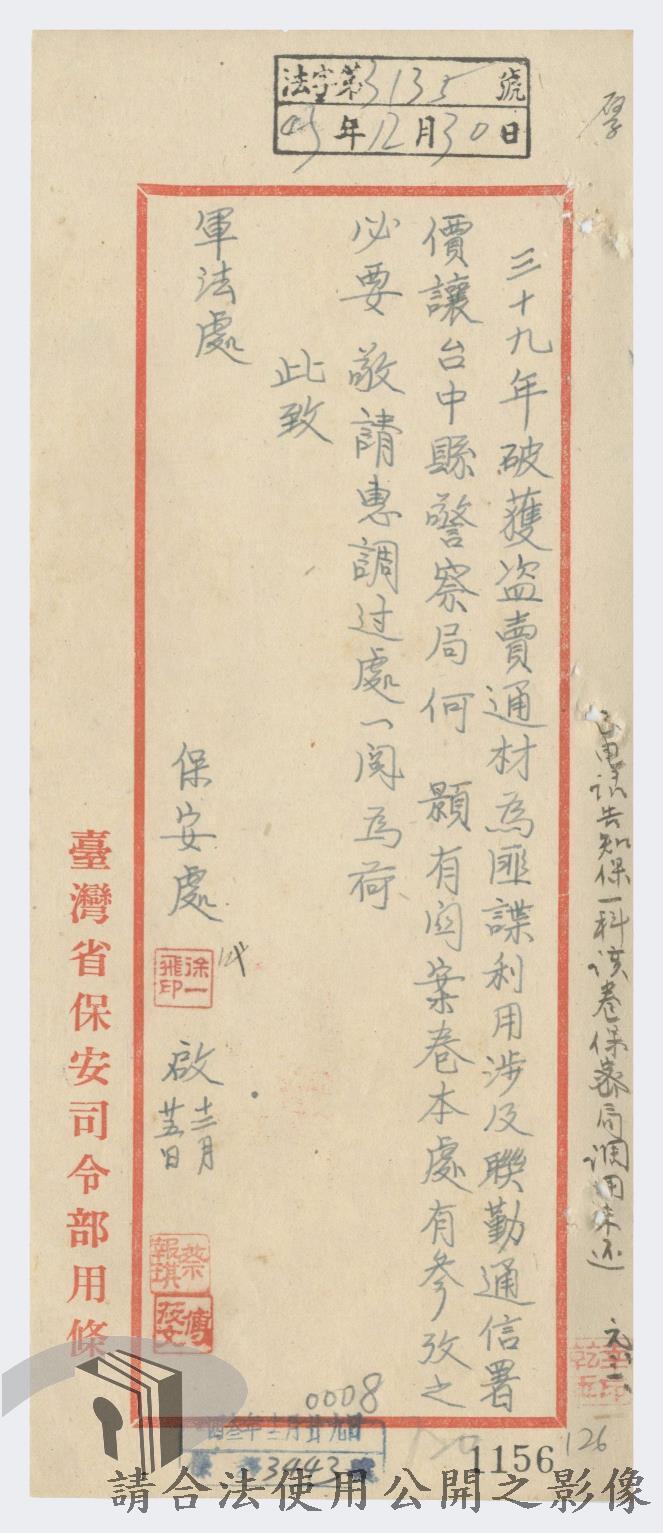 法字第3135號
43年12月30日
三十九年破獲盗賣通材為匪諜利用涉及聯勤通信署
價讓台中縣警察局何 顥有関案卷本處有參攷之
必要敬請惠調过處一閱為荷
此致
軍法處
保安處
徐一飛印
代
啟
十二月
廿五日
蔡報琪
臺灣省保安司令部用條
告知保一科該卷保密局調用未还
0008
四叁年十二月廿九日
3443號
120
126
1156
請合法使用公開之影像